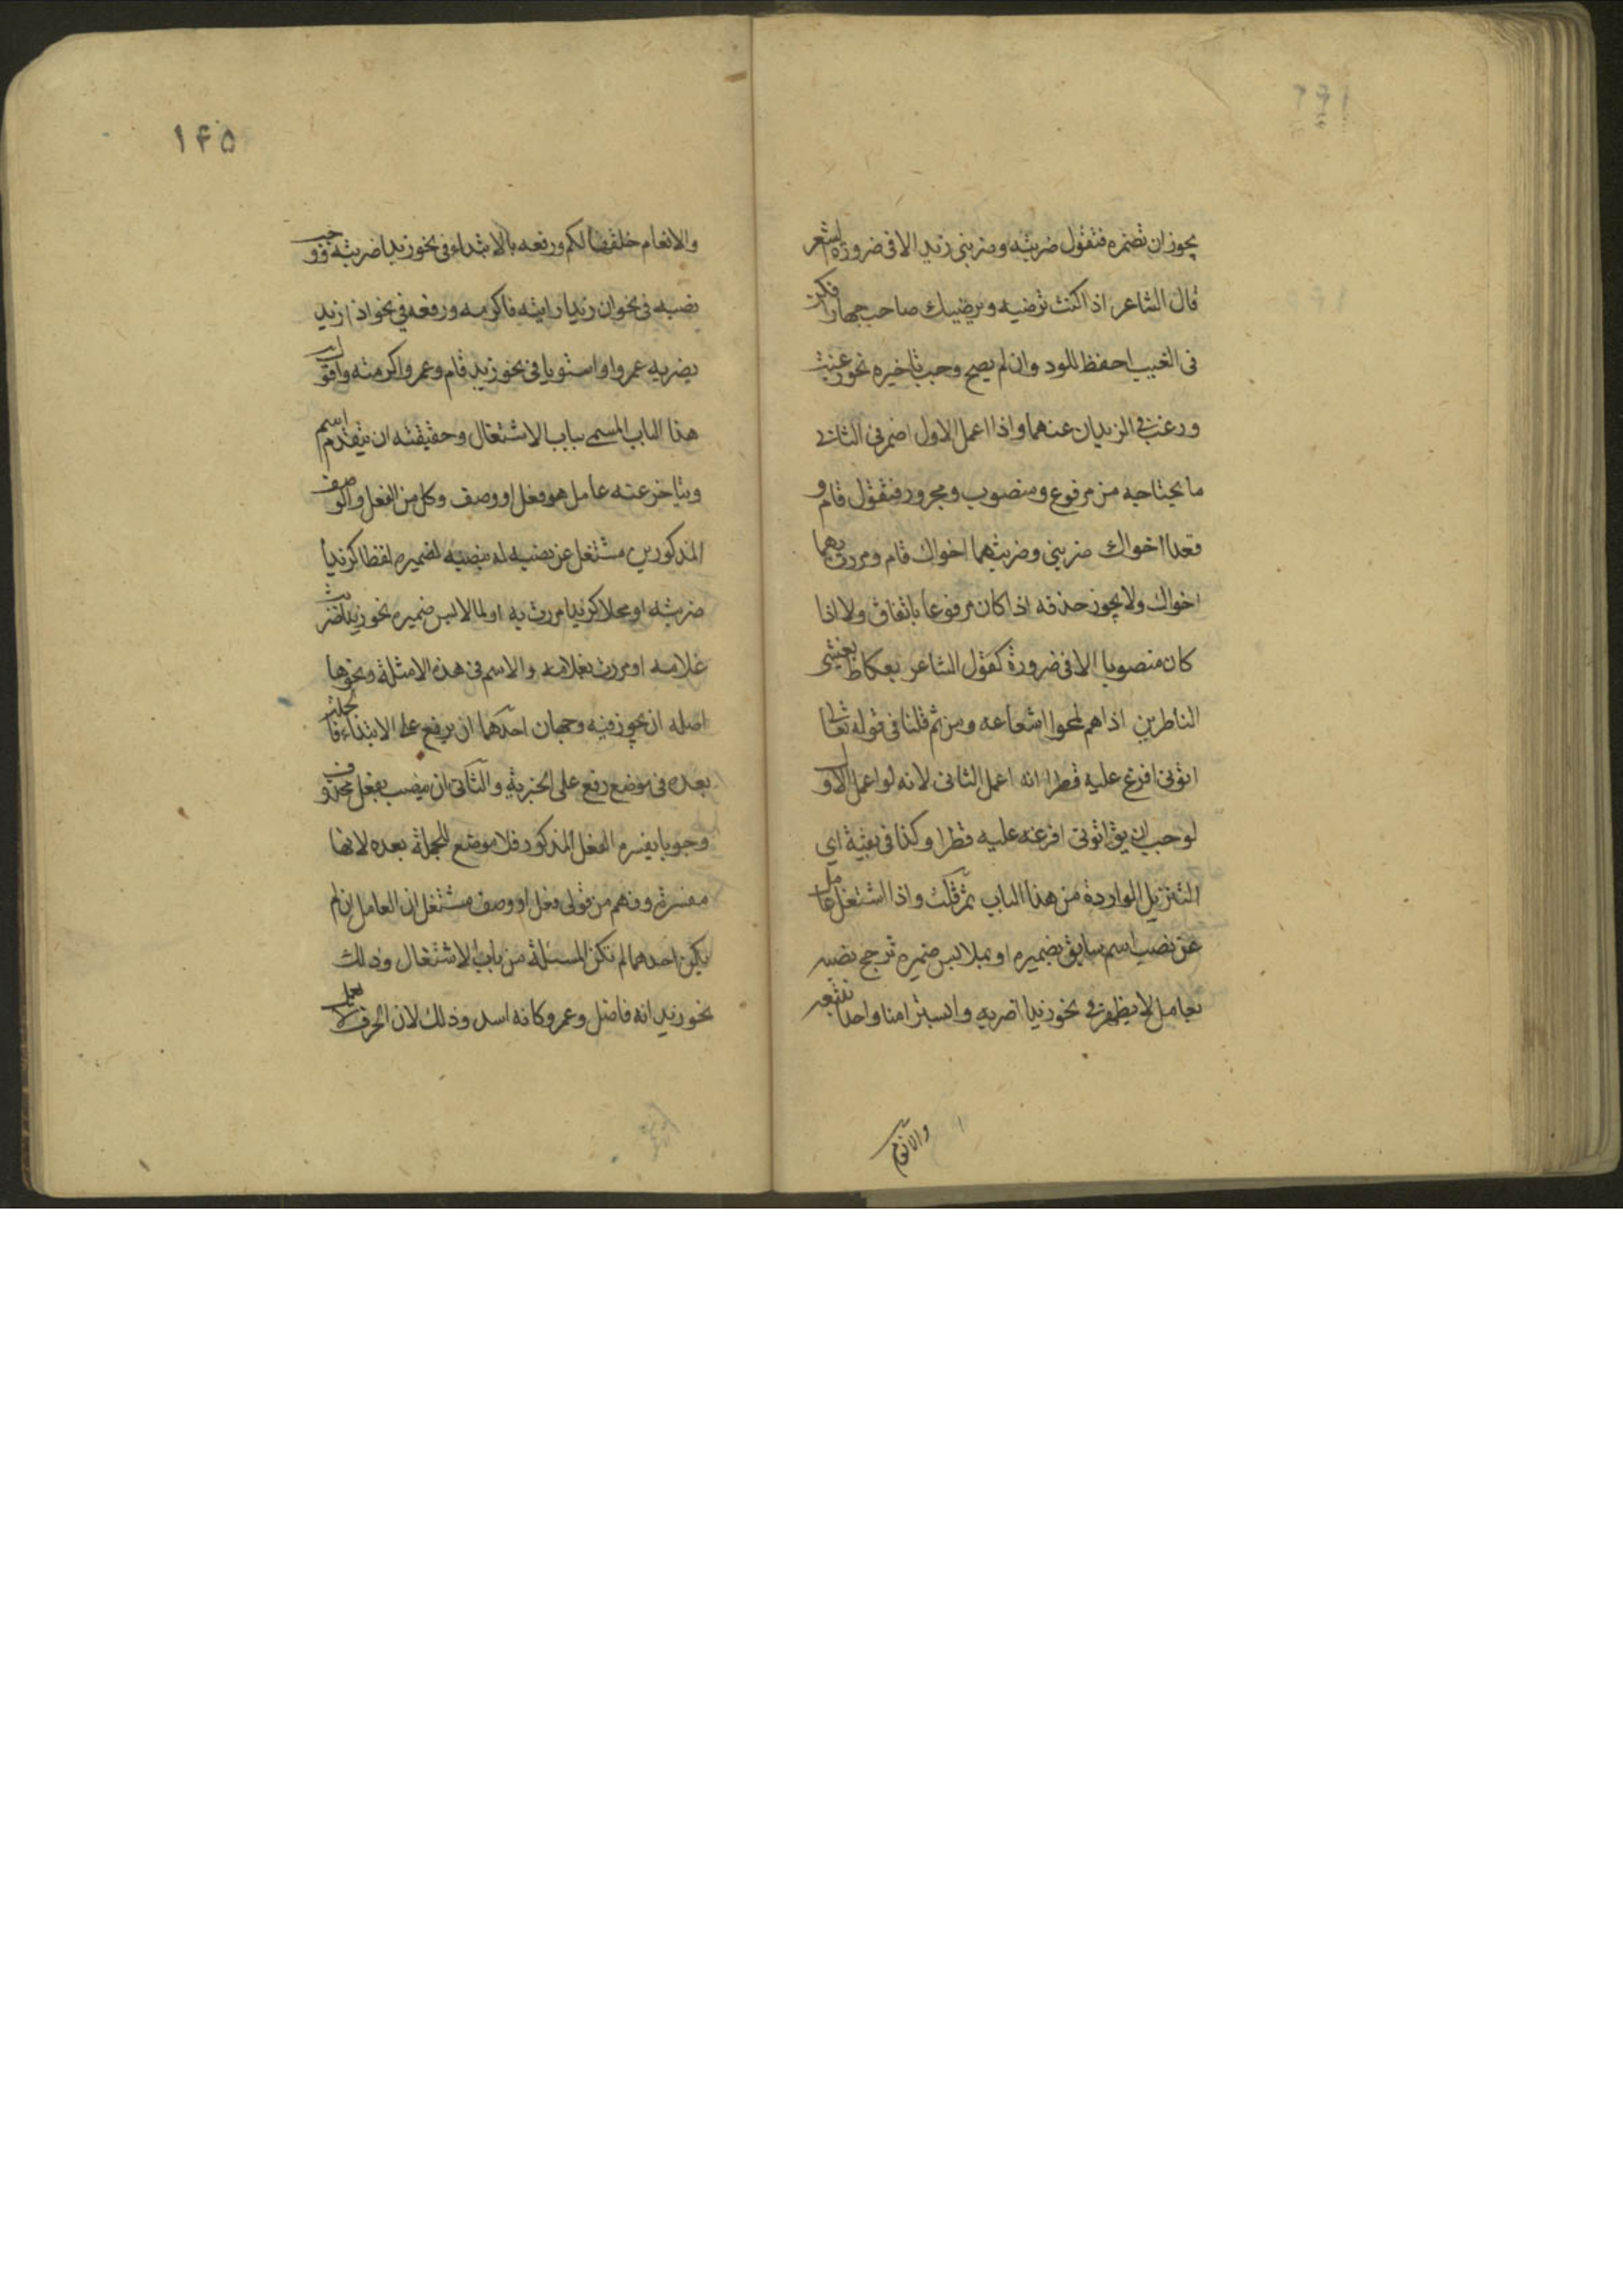 يجوز ان تضمره فتقول ضربته وضربني زيد الا في ضرورة الشعر
قال الشاعر اذا كنت ترضيه ويرضيك صاحب جهارا فكن
في الغيب احفظ للود وان لم يصح وجب تاخيره نحو رغبت
ورغب في الزيدان عنهما واذا اعمل الاول اضمر في الثاني
ما يحتاجه من مرفوع ومنصوب ومجرور فتقول قام و
قعدا اخواك ضربني وضربتهما اخواك قام ومررت بهما
اخواك ولا يجوز حذفه اذا كان مرفوعا باتفاق ولا اذا
كان منصوبا الا في ضرورة كقول الشاعر بعكاظ يغشى
الناظرين اذا هم لمحوا شعاعه ومن ثم قلنا في قوله تعالى
اتوني افرغ عليه قطرا انه اعمل الثاني لانه لو اعمل الاول
لوجب ان يق اتوني افرغه عليه قطرا وكذا في بقية اي
التنزيل الواردة من هذا الباب ثم قلت واذا اشتغل عامل
عن نصب اسم سابق بضميره او بملابس ضميره ترجح نصبه
بعامل لا يظهر في نحو زيدا اضربه وابشرا منا واحدا نتبعه
والانعام
١۴۵
والانعام خلقها لكم ورفعه بالابتداء في نحو زيدا ضربته ووجب
نصبه في نحو ان زيدا رايته فاكرمه ورفعه في نحو اذا زيد
يضربه عمرو او استويا في نحو زيد قام وعمرو اكرمته واقول
هذا الباب المسمى بباب الاشتغال وحقيقته ان يتقدم اسم
ويتاخر عنه عامل هو فعل او وصف وكل من الفعل والوصف
المذكورين مشتغل عن نصبه له بنصبه لضميره لفظا كزيدا
ضربته او محلا كزيدا مررت به او لما لابس ضميره نحو زيدا ضربت
غلامه او مررت بغلامه والاسم في هذه الامثلة ونحوها
اصله ان يجوز فيه وجهان احدهما ان يرفع على الابتداء فالجملة
بعده في موضع رفع على الخبرية والثاني ان ينصب بفعل محذوف
وجوبا يفسره الفعل المذكور فلا موضع للجملة بعده لانها
مفسرة وفهم من قولي فعل او وصف مشتغل ان العامل ان لم
يكن احدهما لم تكن المسئلة من باب الاشتغال وذلك
نحو زيد انه فاضل وعمرو كانه اسد وذلك لان الحرف لا يعمل